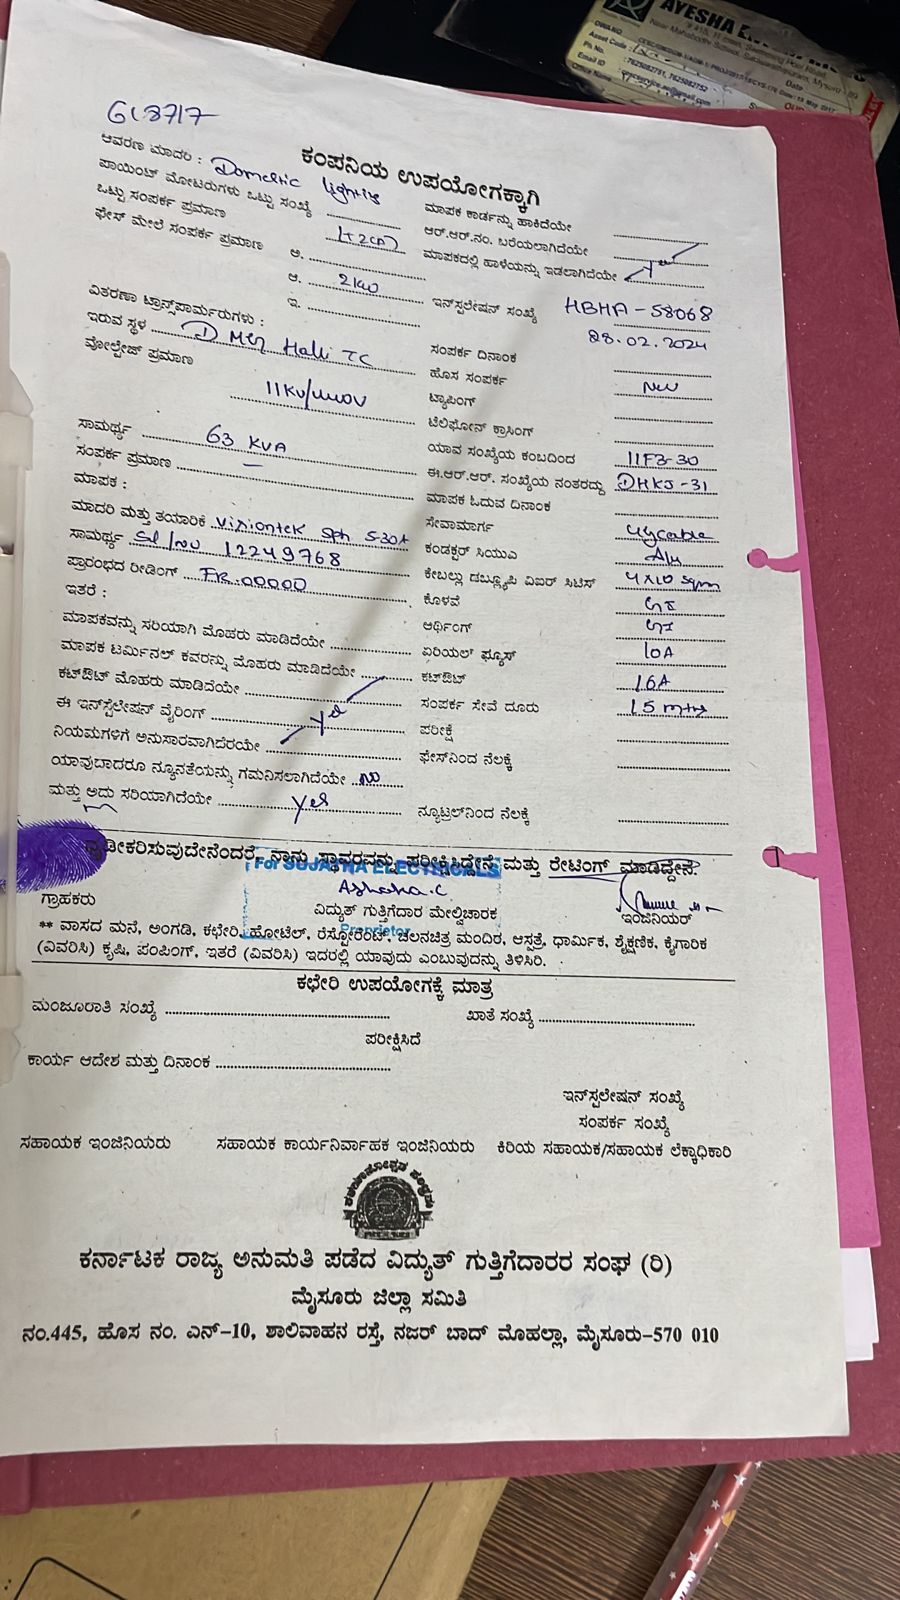 AYESHA
ಕಂಪನಿಯ ಉಪಯೋಗಕ್ಕಾಗಿ
ಆವರಣ ಮಾದರಿ : Domestic lighting
ಪಾಯಿಂಟ್ ಮೋಟರುಗಳು ಒಟ್ಟು ಸಂಖ್ಯೆ
ಒಟ್ಟು ಸಂಪರ್ಕ ಪ್ರಮಾಣ
ಫೇಸ್ ಮೇಲೆ ಸಂಪರ್ಕ ಪ್ರಮಾಣ ಅ.
ಆ. 2KW
ಇ.
ಮಾಪಕ ಕಾರ್ಡನ್ನು ಹಾಕಿದೆಯೇ
ಆರ್.ಆರ್.ನಂ. ಬರೆಯಲಾಗಿದೆಯೇ
ಮಾಪಕದಲ್ಲಿ ಹಾಳೆಯನ್ನು ಇಡಲಾಗಿದೆಯೇ Yes
ಇನ್‌ಸ್ಟಲೇಷನ್ ಸಂಖ್ಯೆ HBHA-58068
28.02.2024
ವಿತರಣಾ ಟ್ರಾನ್ಸ್‌ಫಾರ್ಮರುಗಳು :
ಇರುವ ಸ್ಥಳ
ವೋಲ್ಟೇಜ್ ಪ್ರಮಾಣ
ಸಾಮರ್ಥ್ಯ 63 KVA
ಸಂಪರ್ಕ ಪ್ರಮಾಣ —
ಮಾಪಕ :
ಮಾದರಿ ಮತ್ತು ತಯಾರಿಕೆ Visiontek Sph 5-30A
ಸಾಮರ್ಥ್ಯ Sl/no 12249768
ಪ್ರಾರಂಭದ ರೀಡಿಂಗ್ FR:00000
ಇತರೆ :
ಮಾಪಕವನ್ನು ಸರಿಯಾಗಿ ಮೊಹರು ಮಾಡಿದೆಯೇ
ಮಾಪಕ ಟರ್ಮಿನಲ್ ಕವರನ್ನು ಮೊಹರು ಮಾಡಿದೆಯೇ
ಕಟ್‌ಔಟ್ ಮೊಹರು ಮಾಡಿದೆಯೇ
ಈ ಇನ್‌ಸ್ಟಲೇಷನ್ ವೈರಿಂಗ್ Yes
ನಿಯಮಗಳಿಗೆ ಅನುಸಾರವಾಗಿದೆರಯೇ
ಯಾವುಬಾದರೂ ನ್ಯೂನತೆಯನ್ನು ಗಮನಿಸಲಾಗಿದೆಯೇ No
ಮತ್ತು ಅದು ಸರಿಯಾಗಿದೆಯೇ Yes
ಸಂಪರ್ಕ ದಿನಾಂಕ
ಹೊಸ ಸಂಪರ್ಕ New
ಟ್ಯಾಪಿಂಗ್
ಟೆಲಿಫೋನ್ ಕ್ರಾಸಿಂಗ್
ಯಾವ ಸಂಖ್ಯೆಯ ಕಂಬದಿಂದ 11F3-30
ಈ.ಆರ್.ಆರ್. ಸಂಖ್ಯೆಯ ನಂತರದ್ದು DHKJ-31
ಮಾಪಕ ಓದುವ ದಿನಾಂಕ
ಸೇವಾಮಾರ್ಗ ugcable
ಕಂಡಕ್ಟರ್ ಸಿಯುಎ Alu
ಕೇಬಲ್ಲು ಡಬ್ಲ್ಯೂಪಿ ವಿಐರ್ ಸಿಟಿಸ್ 4x10 sqmm
ಕೊಳವೆ GI
ಅರ್ಥಿಂಗ್ GI
ಏರಿಯಲ್ ಫ್ಯೂಸ್ 10A
ಕಟ್‌ಔಟ್ 16A
ಸಂಪರ್ಕ ಸೇವೆ ದೂರು 15 mtrs
ಪರೀಕ್ಷೆ
ಫೇಸ್‌ನಿಂದ ನೆಲಕ್ಕೆ
ನ್ಯೂಟ್ರಲ್‌ನಿಂದ ನೆಲಕ್ಕೆ
ನಾನು ಸ್ಥಾವರವನ್ನು ಪರೀಕ್ಷಿಸಿದ್ದೇನೆ ಮತ್ತು ರೇಟಿಂಗ್ ಮಾಡಿದ್ದೇನೆ.
For SUJATHA ELECTRICALS
Ashoka.C
ಗ್ರಾಹಕರು ವಿದ್ಯುತ್ ಗುತ್ತಿಗೆದಾರ ಮೇಲ್ವಿಚಾರಕ ಇಂಜಿನಿಯರ್
Proprietor
** ವಾಸದ ಮನೆ, ಅಂಗಡಿ, ಕಛೇರಿ, ಹೋಟೆಲ್, ರೆಸ್ಟೋರೆಂಟ್, ಚಲನಚಿತ್ರ ಮಂದಿರ, ಆಸ್ಪತ್ರೆ, ಧಾರ್ಮಿಕ, ಶೈಕ್ಷಣಿಕ, ಕೈಗಾರಿಕ
(ವಿವರಿಸಿ) ಕೃಷಿ, ಪಂಪಿಂಗ್, ಇತರೆ (ವಿವರಿಸಿ) ಇದರಲ್ಲಿ ಯಾವುದು ಎಂಬುವುದನ್ನು ತಿಳಿಸಿರಿ.
ಕಛೇರಿ ಉಪಯೋಗಕ್ಕೆ ಮಾತ್ರ
ಮಂಜೂರಾತಿ ಸಂಖ್ಯೆ ಖಾತೆ ಸಂಖ್ಯೆ
ಪರೀಕ್ಷಿಸಿದೆ
ಕಾರ್ಯ ಆದೇಶ ಮತ್ತು ದಿನಾಂಕ
ಇನ್‌ಸ್ಪಲೇಷನ್ ಸಂಖ್ಯೆ
ಸಂಪರ್ಕ ಸಂಖ್ಯೆ
ಸಹಾಯಕ ಇಂಜಿನಿಯರು ಸಹಾಯಕ ಕಾರ್ಯನಿರ್ವಾಹಕ ಇಂಜಿನಿಯರು ಕಿರಿಯ ಸಹಾಯಕ/ಸಹಾಯಕ ಲೆಕ್ಕಾಧಿಕಾರಿ
ಕರ್ನಾಟಕ ರಾಜ್ಯ ಅನುಮತಿ ಪಡೆದ ವಿದ್ಯುತ್ ಗುತ್ತಿಗೆದಾರರ ಸಂಘ (ರಿ)
ಮೈಸೂರು ಜಿಲ್ಲಾ ಸಮಿತಿ
ನಂ.445, ಹೊಸ ನಂ. ಎನ್-10, ಶಾಲಿವಾಹನ ರಸ್ತೆ, ನಜರ್ ಬಾದ್ ಮೊಹಲ್ಲಾ, ಮೈಸೂರು-570 010